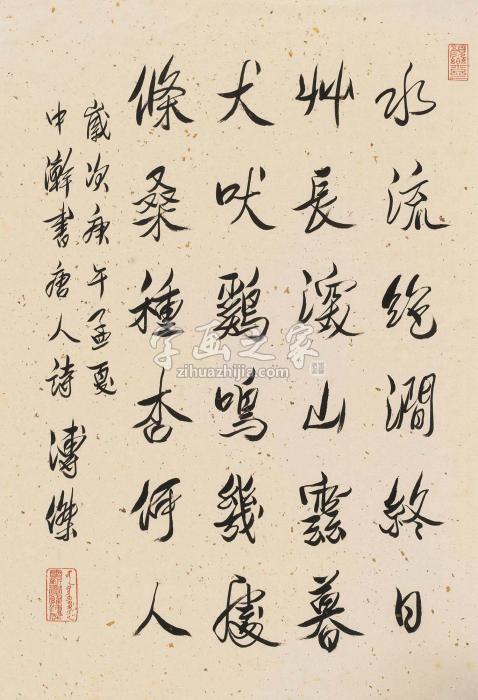 水流絶澗終日
艸長深山雲暮
犬吠鷄鳴幾處
條桑種杏何人
歲次庚午孟夏
中澣書唐人詩 溥傑
字画之家
zihuazhijia.com